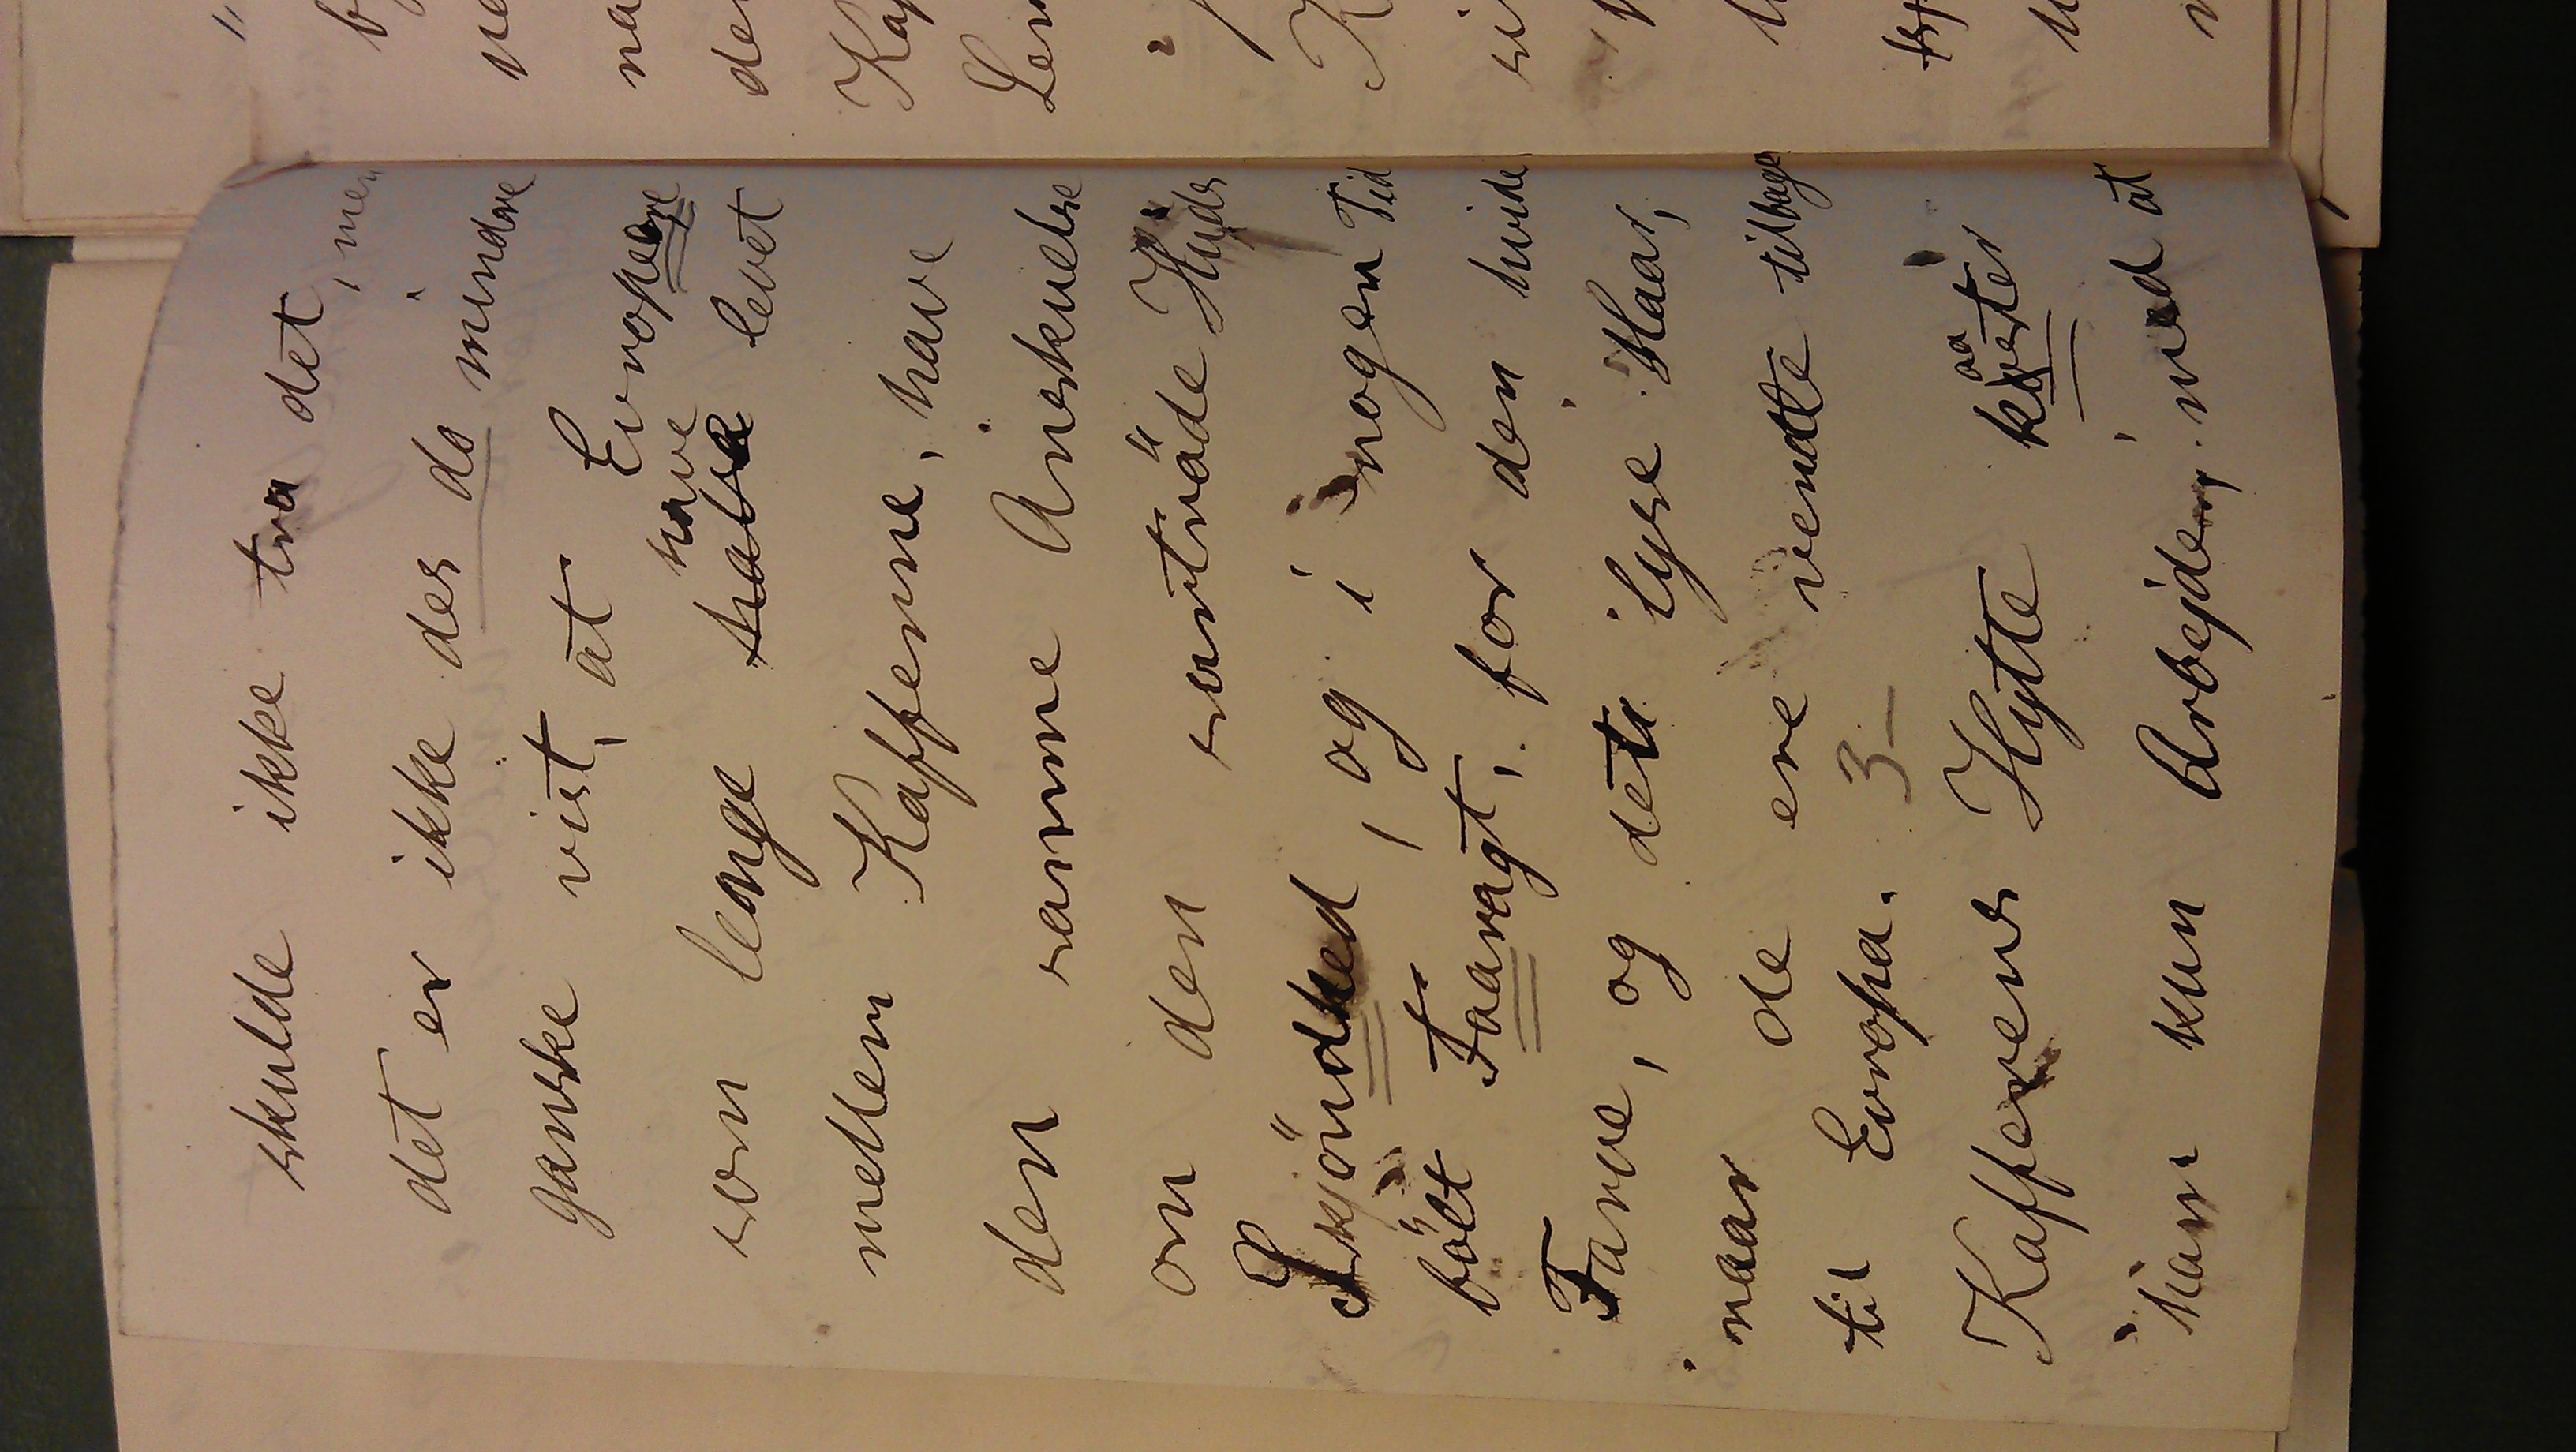 skulde ikke tro det, men
det er ikke des do mindre
ganske vist, at Europeere
som længe have levet
mellem Kafferne, have
den samme Anskuelse
om den sorträde Huds
Skjöndhed, og i nogen Tid
bölt Faaragt, for den hvide
Farve, og det lyse Haar,
naar de ere vendte tilbage
til Europa. 3
Kafferens Hytte koster
ham kun Arbejder, med at